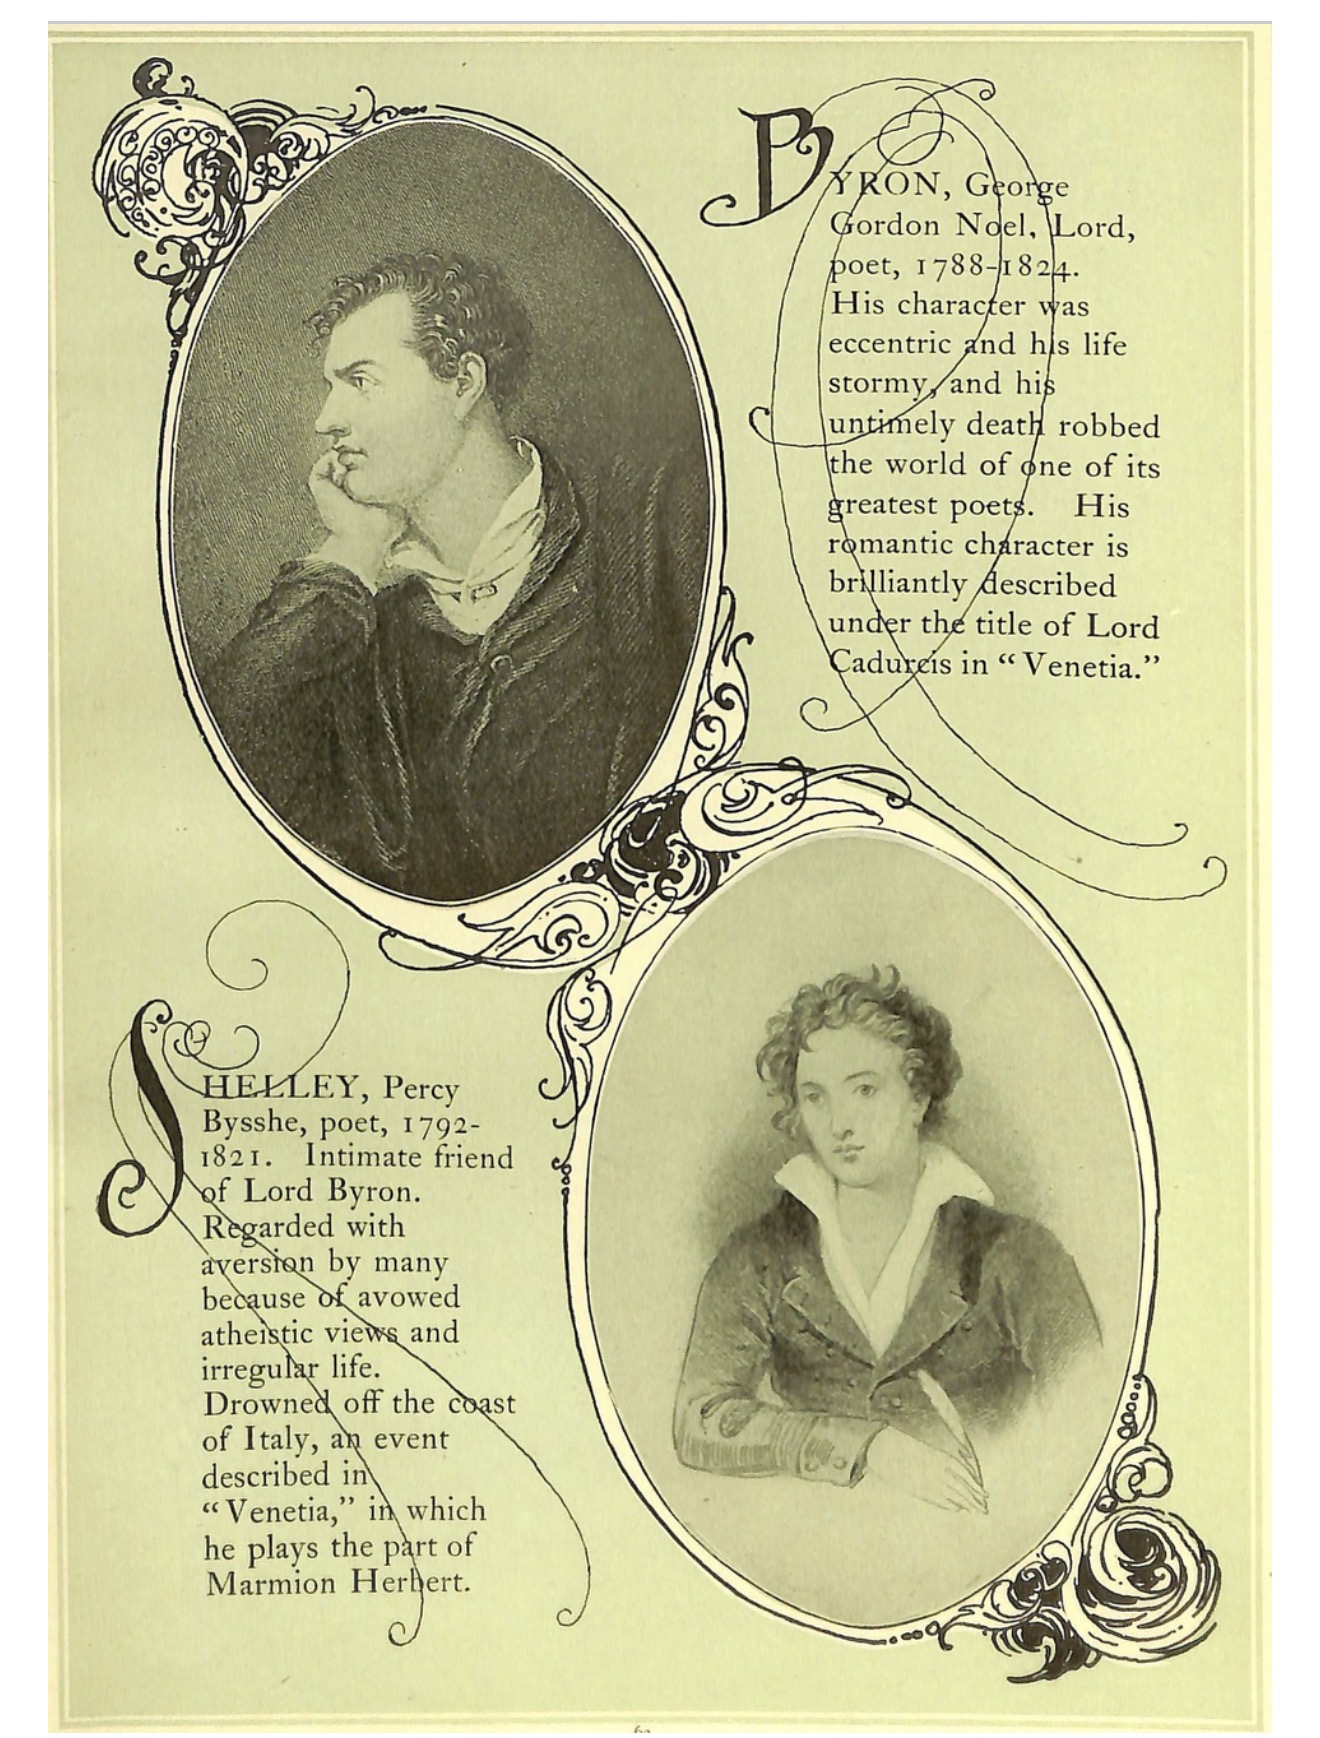 BYRON, George
Gordon Noel, Lord,
poet, 1788-1824.
His character was
eccentric and his life
stormy, and his
untimely death robbed
the world of one of its
greatest poets. His
romantic character is
brilliantly described
under the title of Lord
Cadurcis in “Venetia.”
SHELLEY, Percy
Bysshe, poet, 1792-
1821. Intimate friend
of Lord Byron.
Regarded with
aversion by many
because of avowed
atheistic views and
irregular life.
Drowned off the coast
of Italy, an event
described in
“Venetia,” in which
he plays the part of
Marmion Herbert.